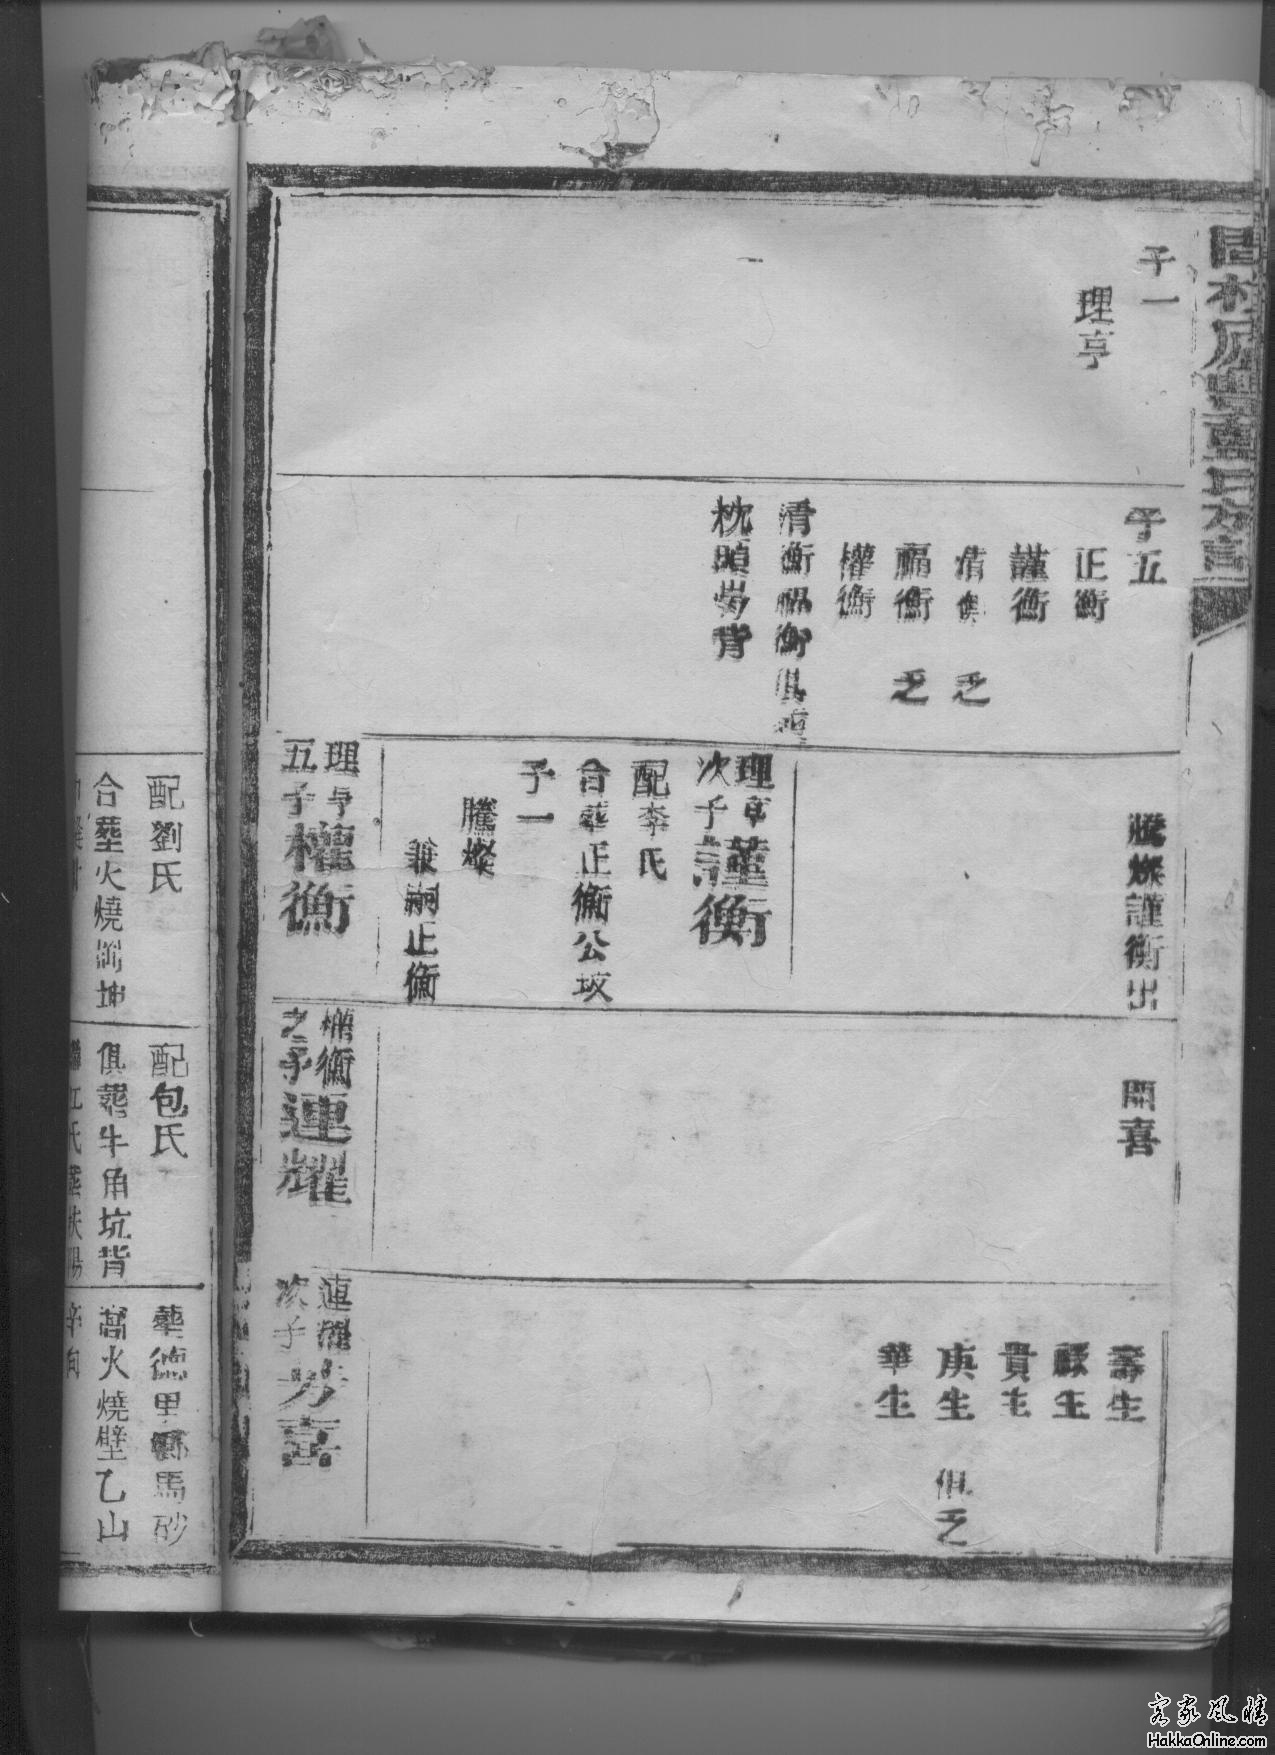 子一
理亨
子五
正衡
謹衡
清衡 乏
福衡 乏
權衡
清衡福衡俱
枕頭岗背
騰燦謹衡出
理亨
次子
謹衡
配李氏
合葬正衡公坟
子一
騰燦
兼嗣正衡
理亨
五子
權衡
開喜
權衡
之子
連耀
壽生
祿生
貴生
庚生 俱乏
華生
連耀
次子
芳喜
配劉氏
合塟火燒坤
配包氏
俱塟牛角坑背
葬德里馬砂
窩火燒壁乙山
辛向
客家風情
HakkaOnline.com